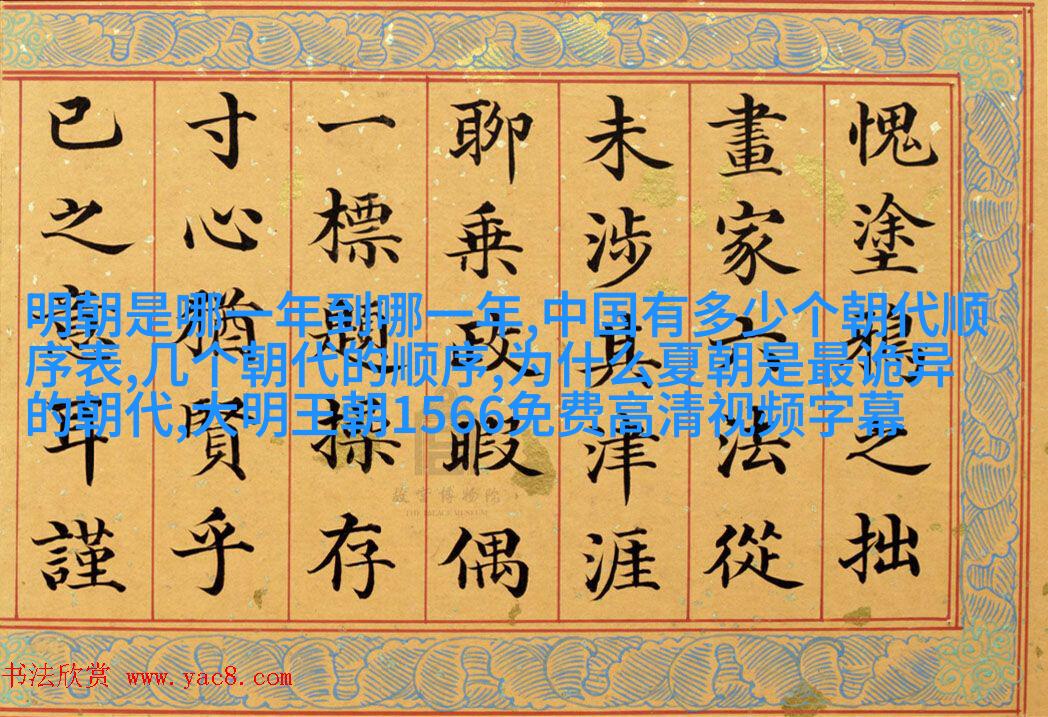 愧塗鴉之拙
畫家六法從
未涉其津涯
聊乘政暇偶
一標題操存
寸心猶賢乎
已之意耳謹
明朝是哪一年到哪一年,中国有多少个朝代顺
序表,几个朝代的顺序,为什么夏朝是最诡异
的朝代,大明王朝1566免费高清视频字幕
故宫博物院
THE PALACE MUSEUM
书法欣赏 www.yac8.com